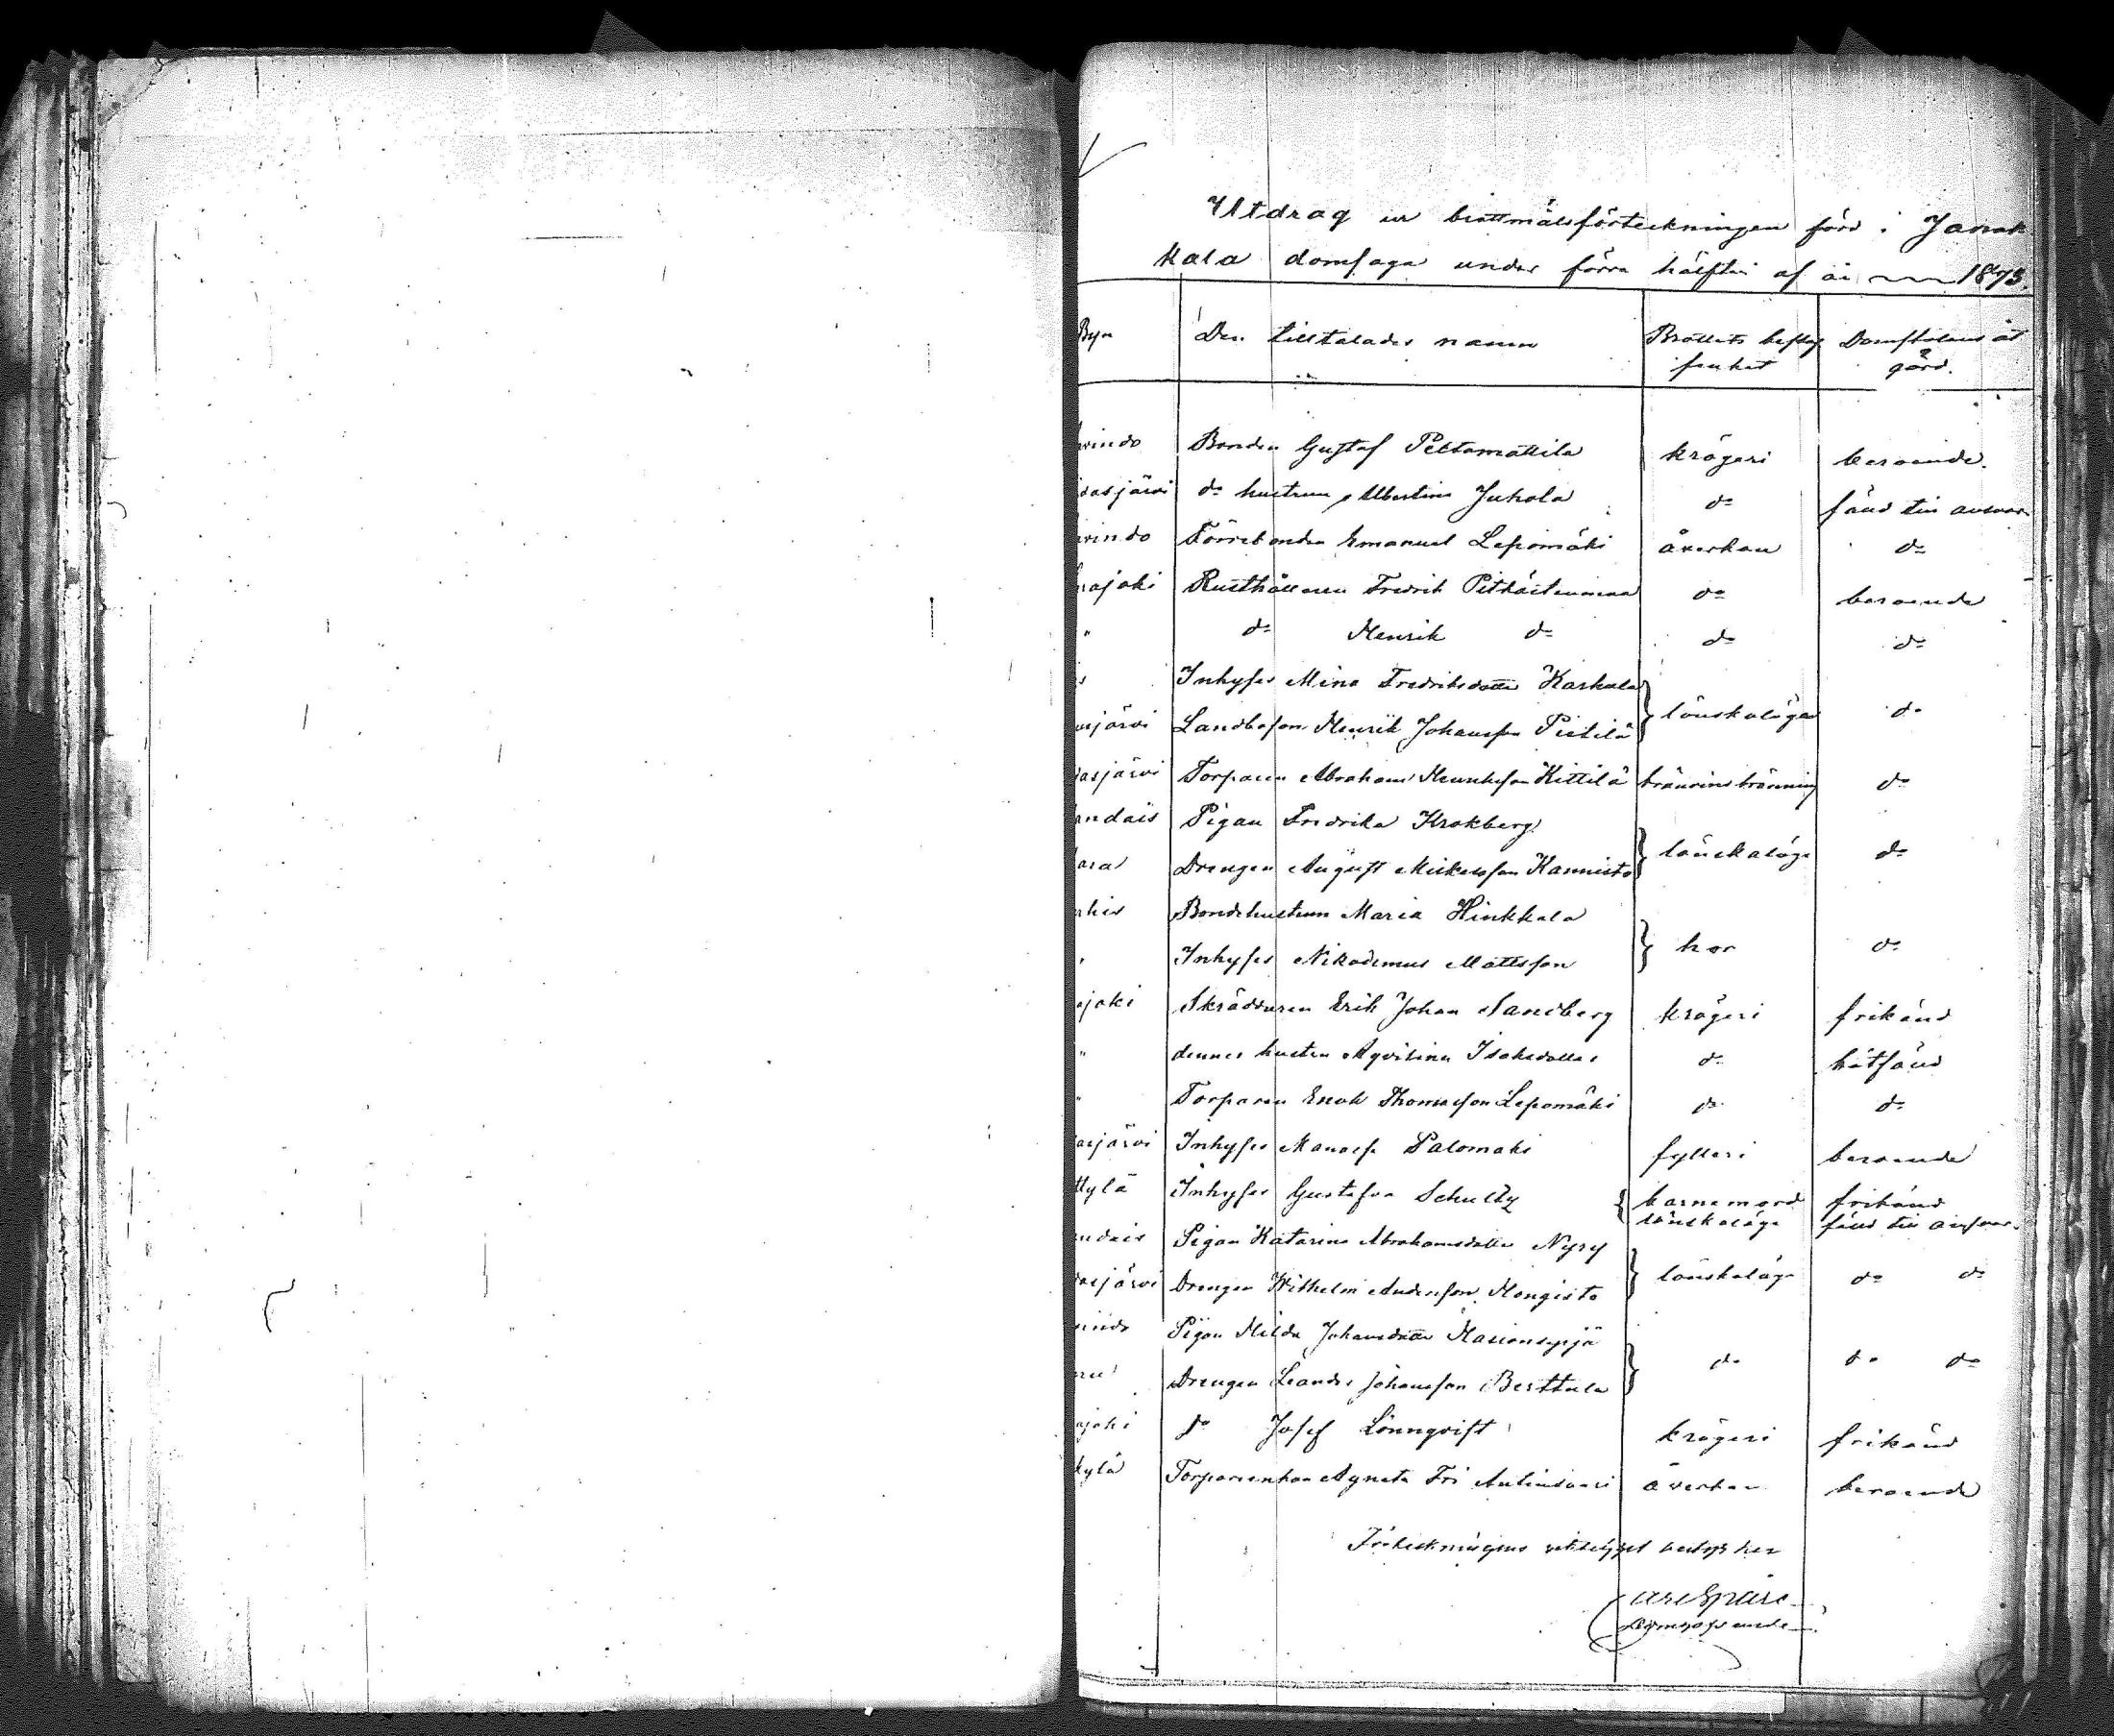 Utdrag ur brottmålsförteckningen förd i Janak
kala domsaga under förra hälften af år 1873.
Byn Den tilltalades namn Brottets beskaf Domstolens åt
fenhet gärd.
vindo Bonden Gustaf Peltomattila krögeri beroende.
dasjärvi do hustrun Albertina Juhola do fäld till ansvar
vindo Förrebonden Emanuel Lepomäki åverkan do
najoki Rusthållaren Fredrik do beroende
" do Henrik do do do
Inhyses Mina Fredriksdotter Karkala
asjärvi Landboson Henrik Johansson Pietilä } lönskaläge do
dasjärvi Torparen Abraham Henriksson Kittilä bränvinsbränning do
andais Pigan Fredrika Krokberg
ara Drengen August Mickelsson Kannisto } lönskaläge do
ahis Bondehustrun Maria Hinkkala
" Inhyses Nikodemus Mattsson } hor do
ajoki Skräddaren Erik Johan Sandberg krögeri frikänd
" dennes hustru Agvilina Isaksdotter do sakfäld
" Torparen Enok Thomasson Lepomäki do do
asjärvi Inhyses Manasse Palomäki fylleri beroende
ttylä Inhyses Gustafva Schultz { barnamord frikänd
lönskaläge fäld till ansvar.
ndais Pigan Katarina Abrahamsdotter Nyry
dasjärvi Drengen Wilhelm Andersson Mongisto } lönskaläge do do
vindo Pigan Hilda Johansdotter
Drengen Leander Johansson Berttula } do do do
ajoki do Josef Lönnqvist krögeri frikänd
kylä Torparenkan Agneta Fri åverkan beroende
Förteckningens riktighet